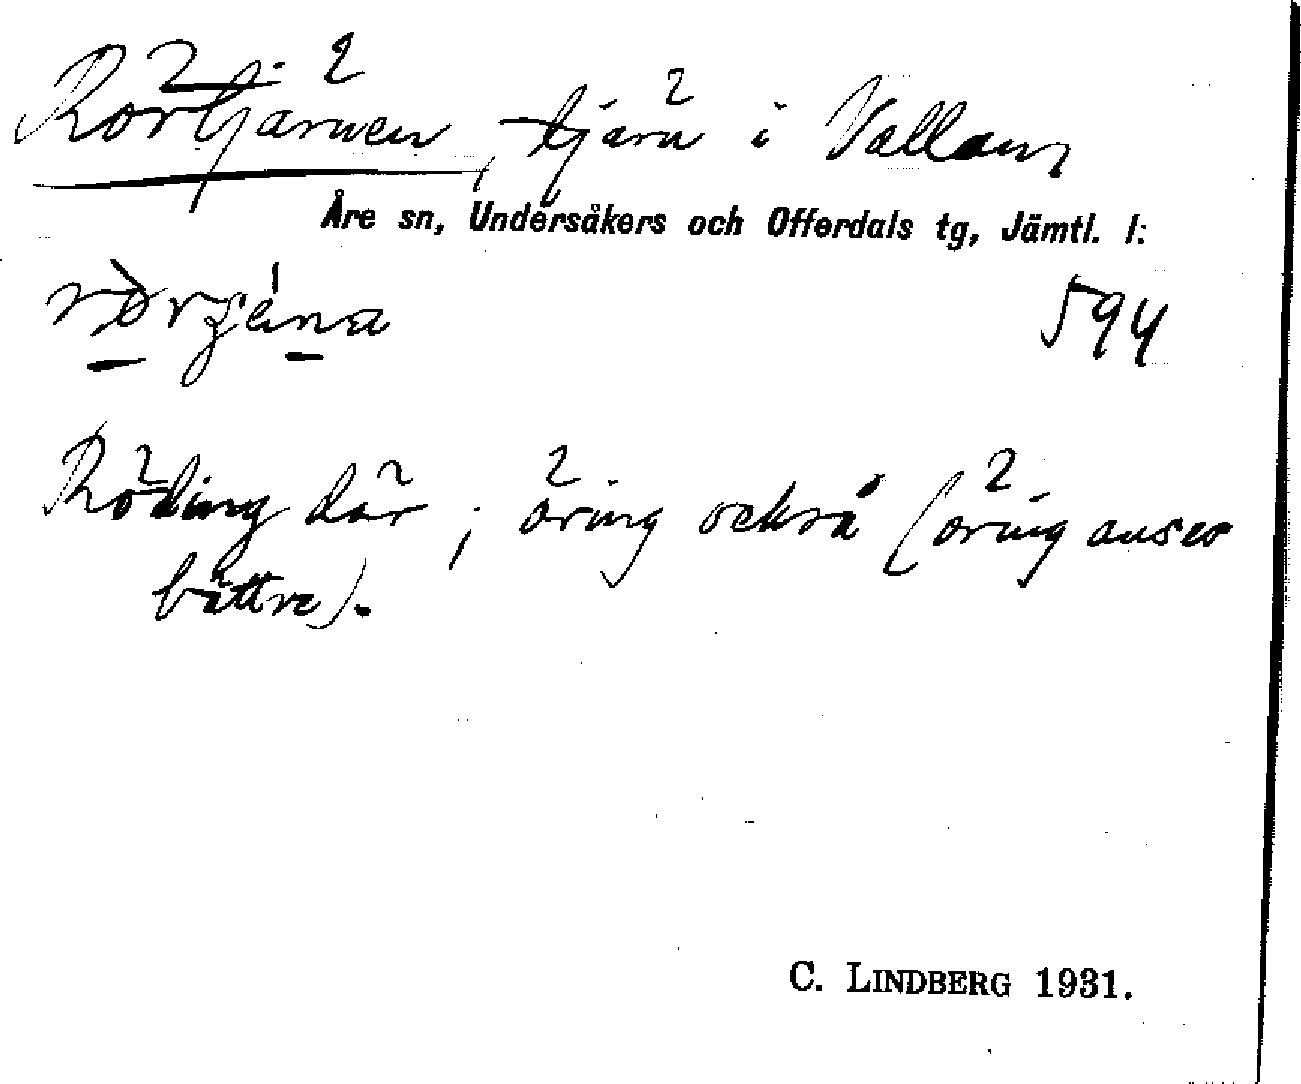 Rörtjärnen, tjärn i Vallarn
Åre sn, Undersåkers och Offerdals tg, Jämtl. l:
594
Röding där; öring också (öring anses
bättre).
C. LINDBERG 1931.